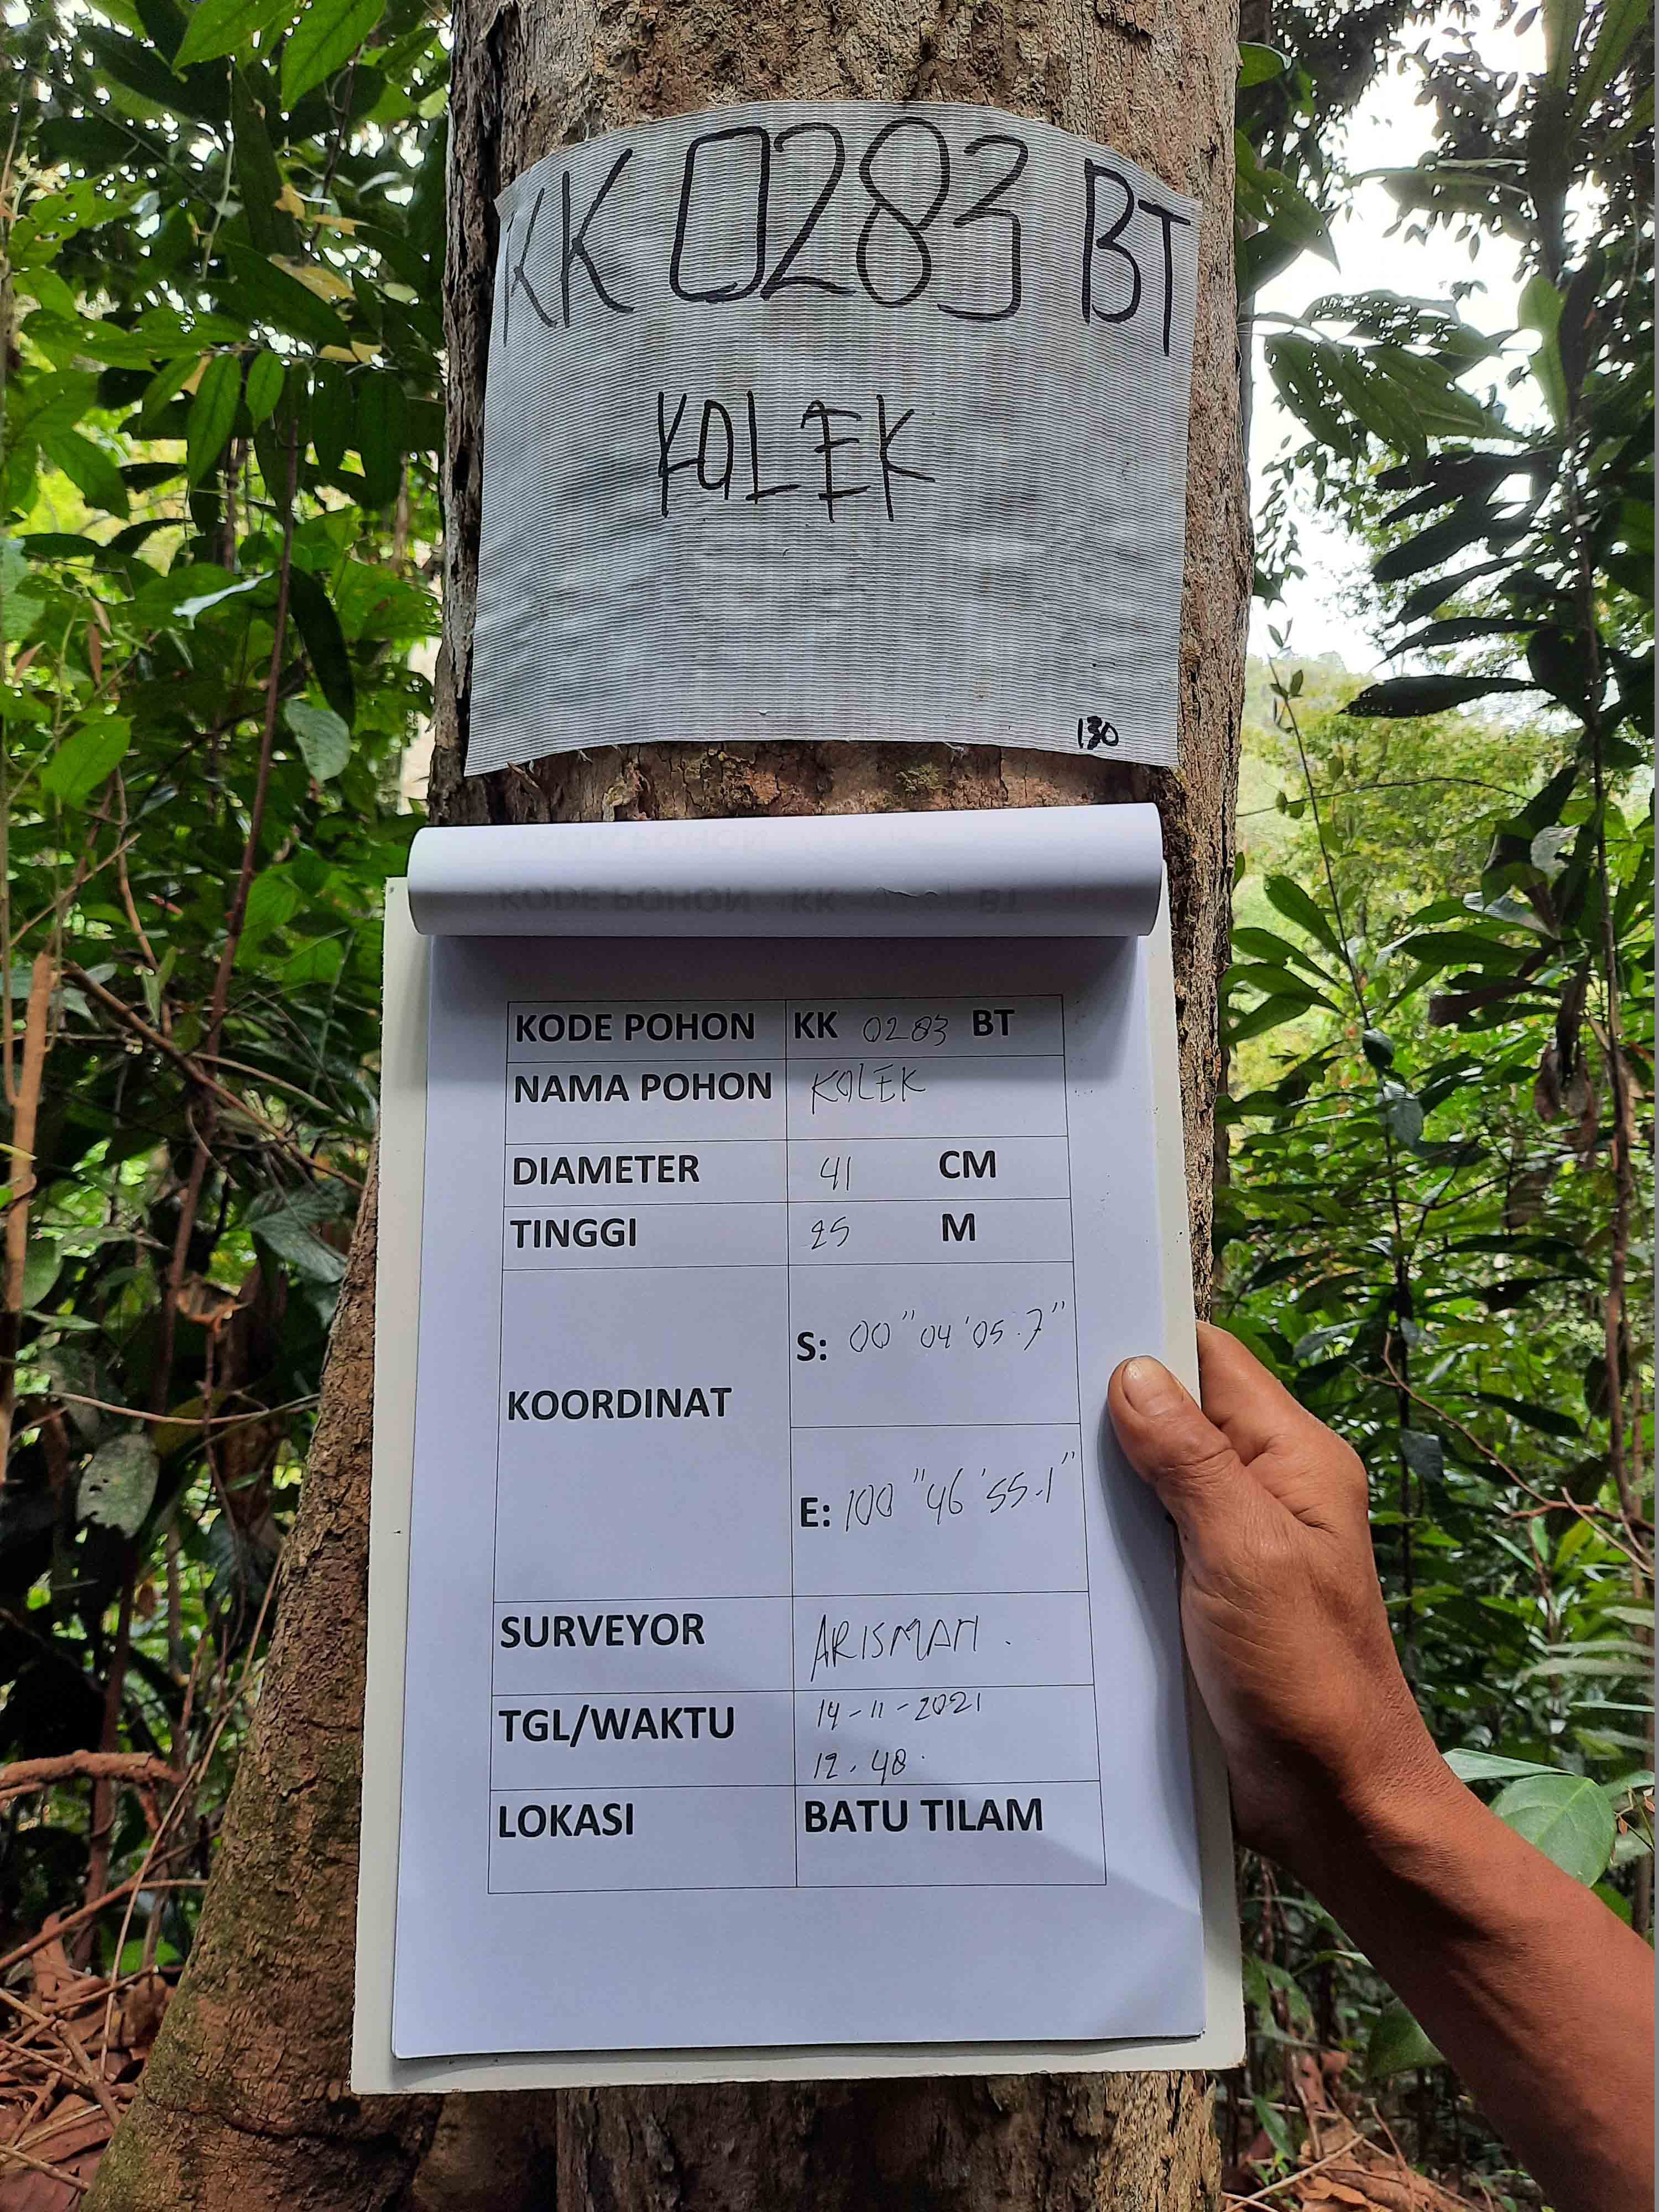 KK 0283 BT
KOLEK
130
KODE POHON KK 0283 BT
NAMA POHON KOLEK
DIAMETER 41 CM
TINGGI 25 M
KOORDINAT
S: 00"04'05.7"
E: 100"46'55.1"
SURVEYOR ARISMAN.
TGL/WAKTU 14-11-2021
12.48.
LOKASI BATU TILAM